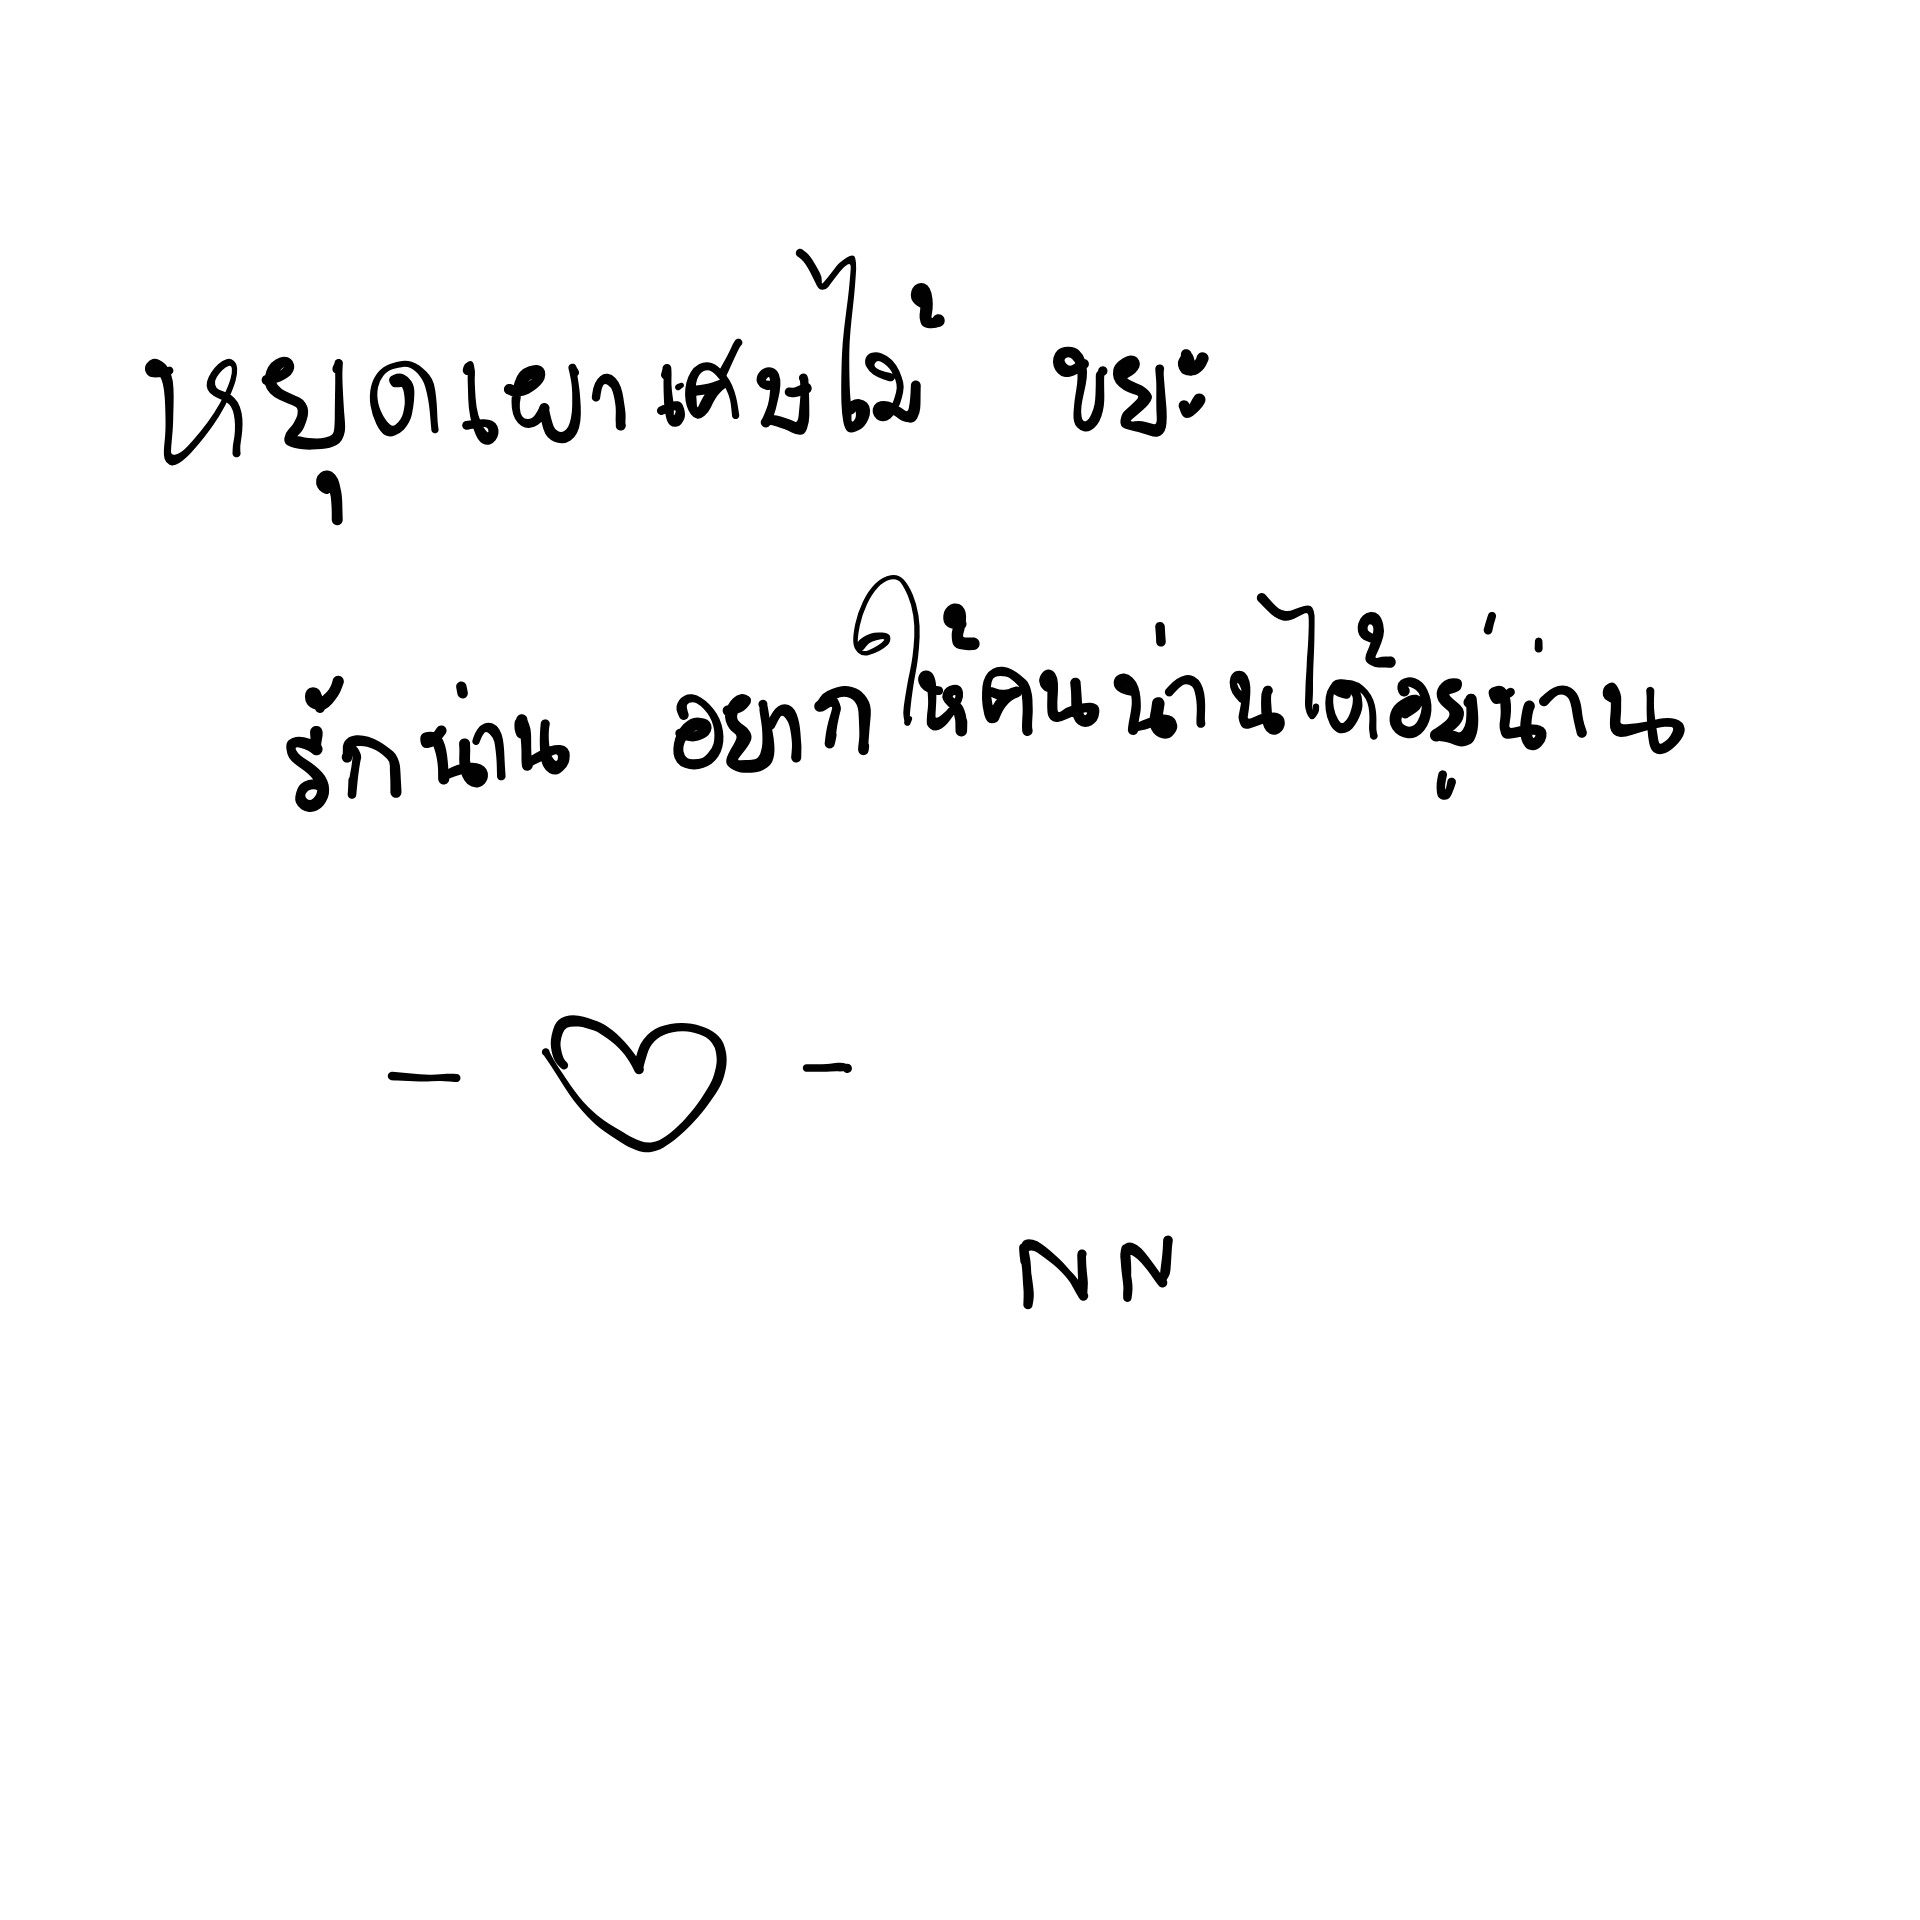 หยุดเผาเศษไม้ ขยะ
รักน่าน อยากให้คนน่านได้อยู่น่าน
NN